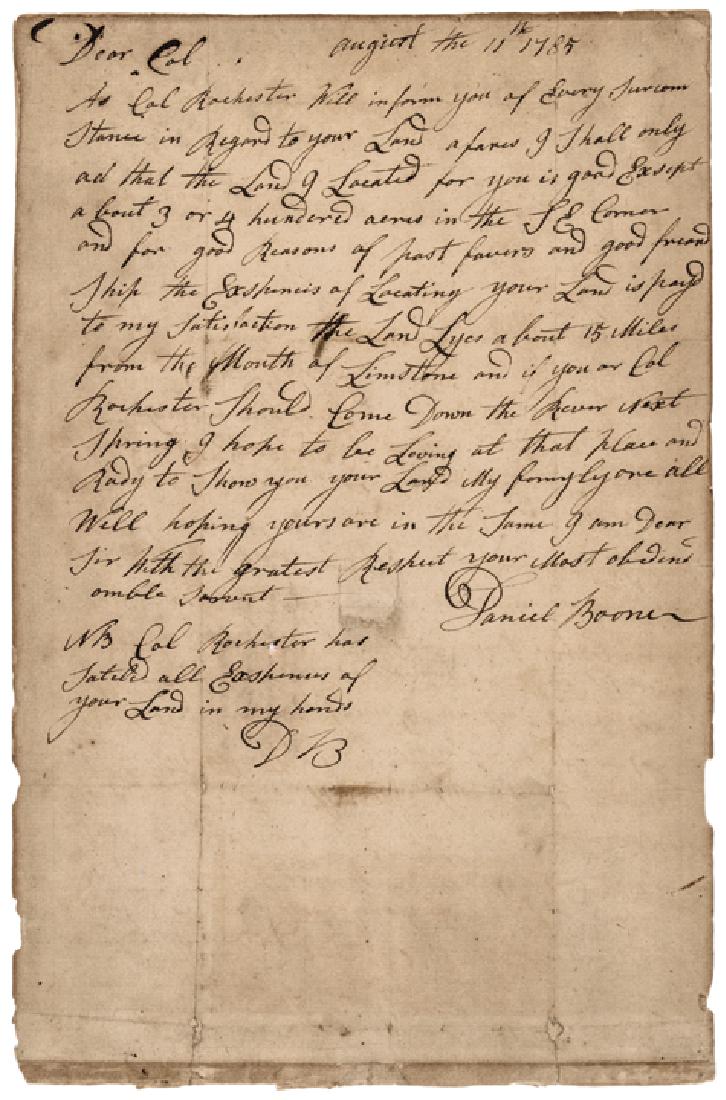 Dear Col august the 11th 1785
As Col Rochester Will inform you of Every Surcom
Stance in Regard to your Land afares I Shall only
ad that the Land I Located for you is good Exsept
about 3 or 4 hundred acres in the S E Corner
and for good Reasons of past favers and good freand
Ship the Exspenceis of Locating your Land is payd
to my Satisfaction the Land Lyes about 15 Miles
from the Mouth of Limstone and if you or Col
Rochester Should Come Down the River Next
Spring I hope to be Living at that place and
Rady to Show you your Land My famyly are all
Well hoping yours are in the Same I am Dear
Sir With the gratest Respect your Most obedent
omble Sarvent
Daniel Boone
NB Col Rochester has
Sateld all Exspences of
your Land in my hands
D B